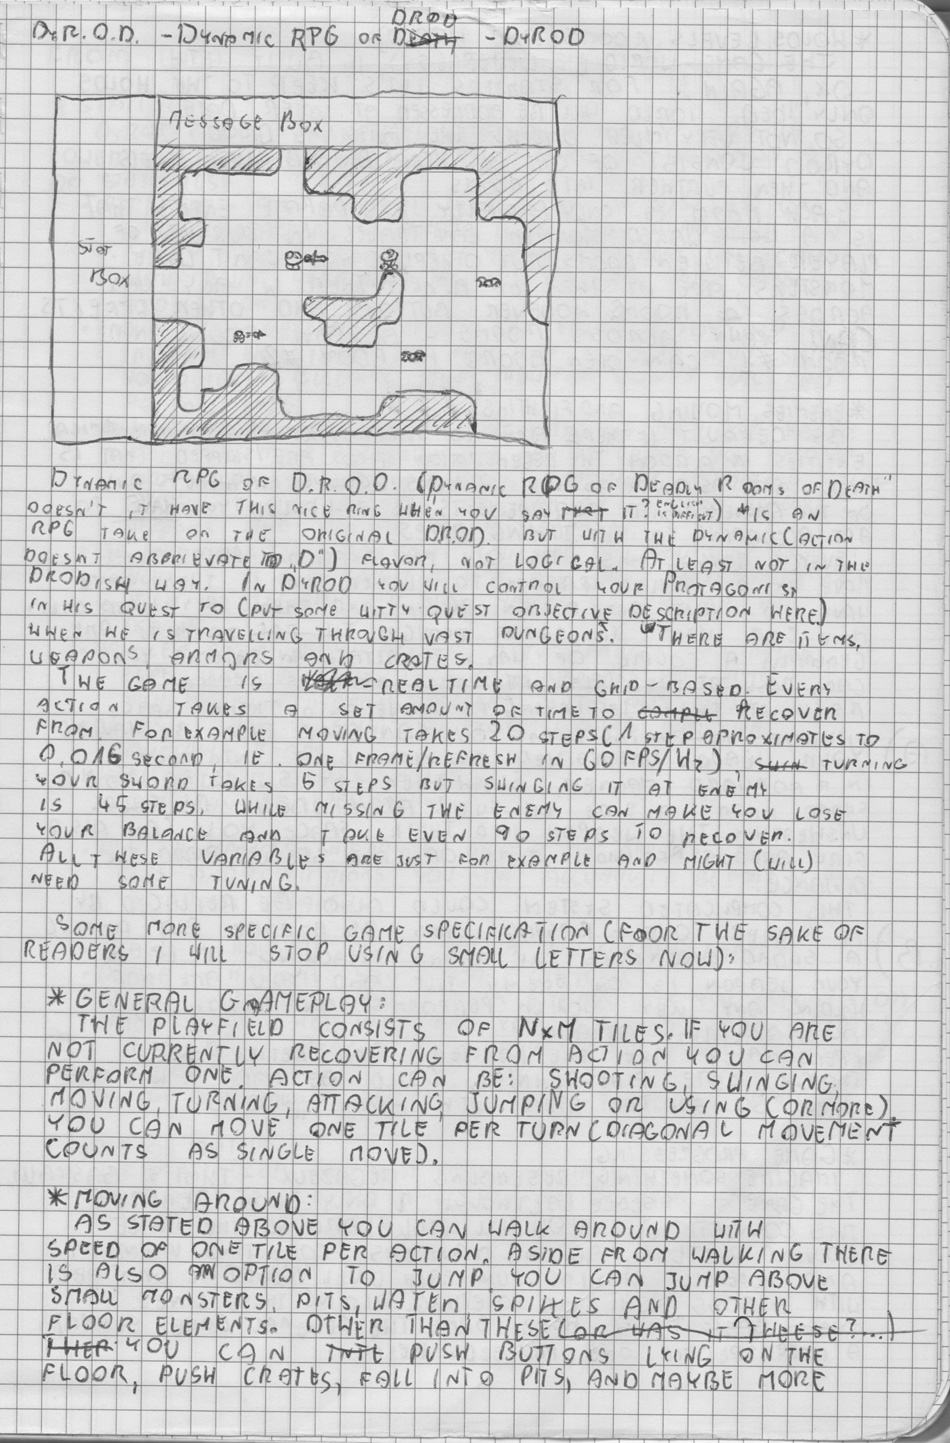 DROD
DYR.O.D. - DYNAMIC RPG OF DEATH - DYROD
MESSAGE BOX
STAT
BOX
DYNAMIC RPG OF D.R.O.D. (DYNAMIC RPG OF DEADLY ROOMS OF DEATH"
DOESN'T IT HAVE THIS NICE RING WHEN YOU SAY THAT IT? ENGLISH IS DIFFICULT) IS AN
RPG TAKE ON THE ORIGINAL DROD. BUT WITH THE DYNAMIC (ACTION
DOESNT ABBRIEVATE TO „D") FLAVOR, NOT LOGICAL. AT LEAST NOT IN THE
DRODISH WAY. IN DYROD YOU WILL CONTROL YOUR PROTAGONIST
IN HIS QUEST TO (PUT SOME WITTY QUEST OBJECTIVE DESCRIPTION HERE)
WHEN HE IS TRAVELLING THROUGH VAST DUNGEONS. THERE ARE ITEMS,
WEAPONS, ARMORS AND CRATES.
THE GAME IS REALTIME AND GRID-BASED. EVERY
ACTION TAKES A SET AMOUNT OF TIME TO RECOVER
FROM. FOR EXAMPLE MOVING TAKES 20 STEPS (1 STEP APROXIMATES TO
0,016 SECOND, IE. ONE FRAME/REFRESH IN 60 FPS/Hz), TURNING
YOUR SWORD TAKES 5 STEPS BUT SWINGING IT AT ENEMY
IS 45 STEPS, WHILE MISSING THE ENEMY CAN MAKE YOU LOSE
YOUR BALANCE AND TAKE EVEN 90 STEPS TO RECOVER.
ALL THESE VARIABLES ARE JUST FOR EXAMPLE AND MIGHT (WILL)
NEED SOME TUNING.
SOME MORE SPECIFIC GAME SPECIFICATION (FOOR THE SAKE OF
READERS I WILL STOP USING SMALL LETTERS NOW):
* GENERAL GAMEPLAY:
THE PLAYFIELD CONSISTS OF NxM TILES. IF YOU ARE
NOT CURRENTLY RECOVERING FROM ACTION YOU CAN
PERFORM ONE. ACTION CAN BE: SHOOTING, SWINGING,
MOVING, TURNING, ATTACKING, JUMPING OR USING (OR MORE).
YOU CAN MOVE ONE TILE PER TURN (DIAGONAL MOVEMENT
COUNTS AS SINGLE MOVE).
* MOVING AROUND:
AS STATED ABOVE YOU CAN WALK AROUND WITH
SPEED OF ONE TILE PER ACTION. ASIDE FROM WALKING THERE
IS ALSO AN OPTION TO JUMP. YOU CAN JUMP ABOVE
SMALL MONSTERS, PITS, WATER, SPIKES AND OTHER
FLOOR ELEMENTS. OTHER THAN THESE (OR WAS IT THEESE?...)
YOU CAN PUSH BUTTONS LYING ON THE
FLOOR, PUSH CRATES, FALL INTO PITS, AND MAYBE MORE